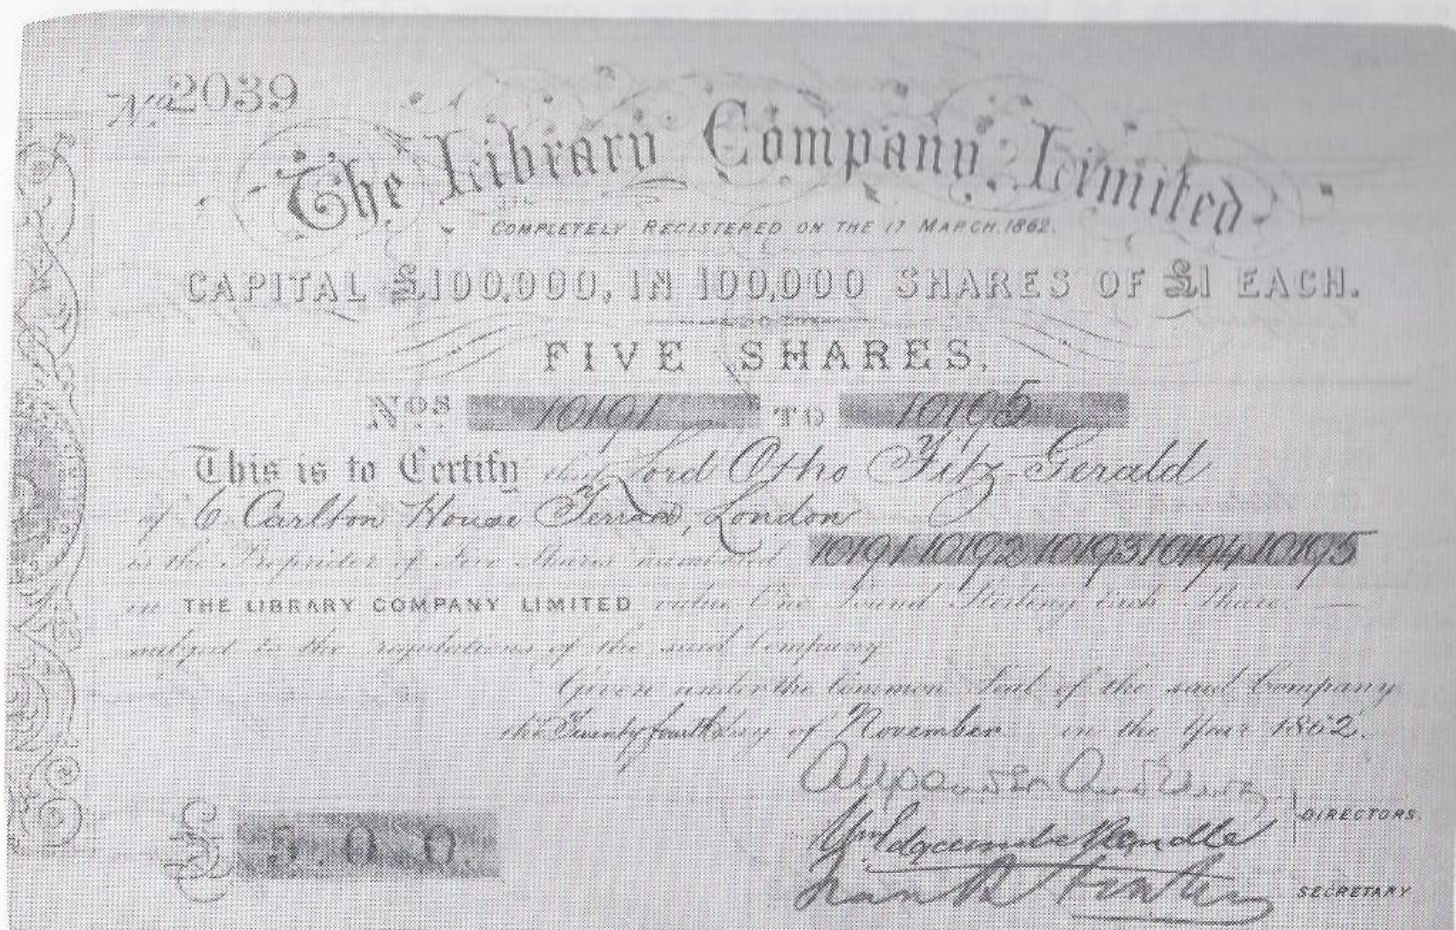 No. 2039
The Library Company Limited.
COMPLETELY REGISTERED ON THE 17 MARCH. 1862.
CAPITAL £100,000, IN 100,000 SHARES OF £1 EACH.
FIVE SHARES.
Nos 10191 TO 10195
This is to Certify that Lord Otho Fitz-Gerald
of 6 Carlton House Terrace, London
is the Proprietor of Five Shares numbered 10191 10192 10193 10194 10195
in THE LIBRARY COMPANY LIMITED value One Pound Sterling Each Share.
subject to the regulations of the said Company
Given under the Common Seal of the said Company
the Twenty fourth day of November in the Year 1862.
Alexander
Wm Edgcumbe Rendle
DIRECTORS.
Frank
SECRETARY
£ 5. 0. 0.